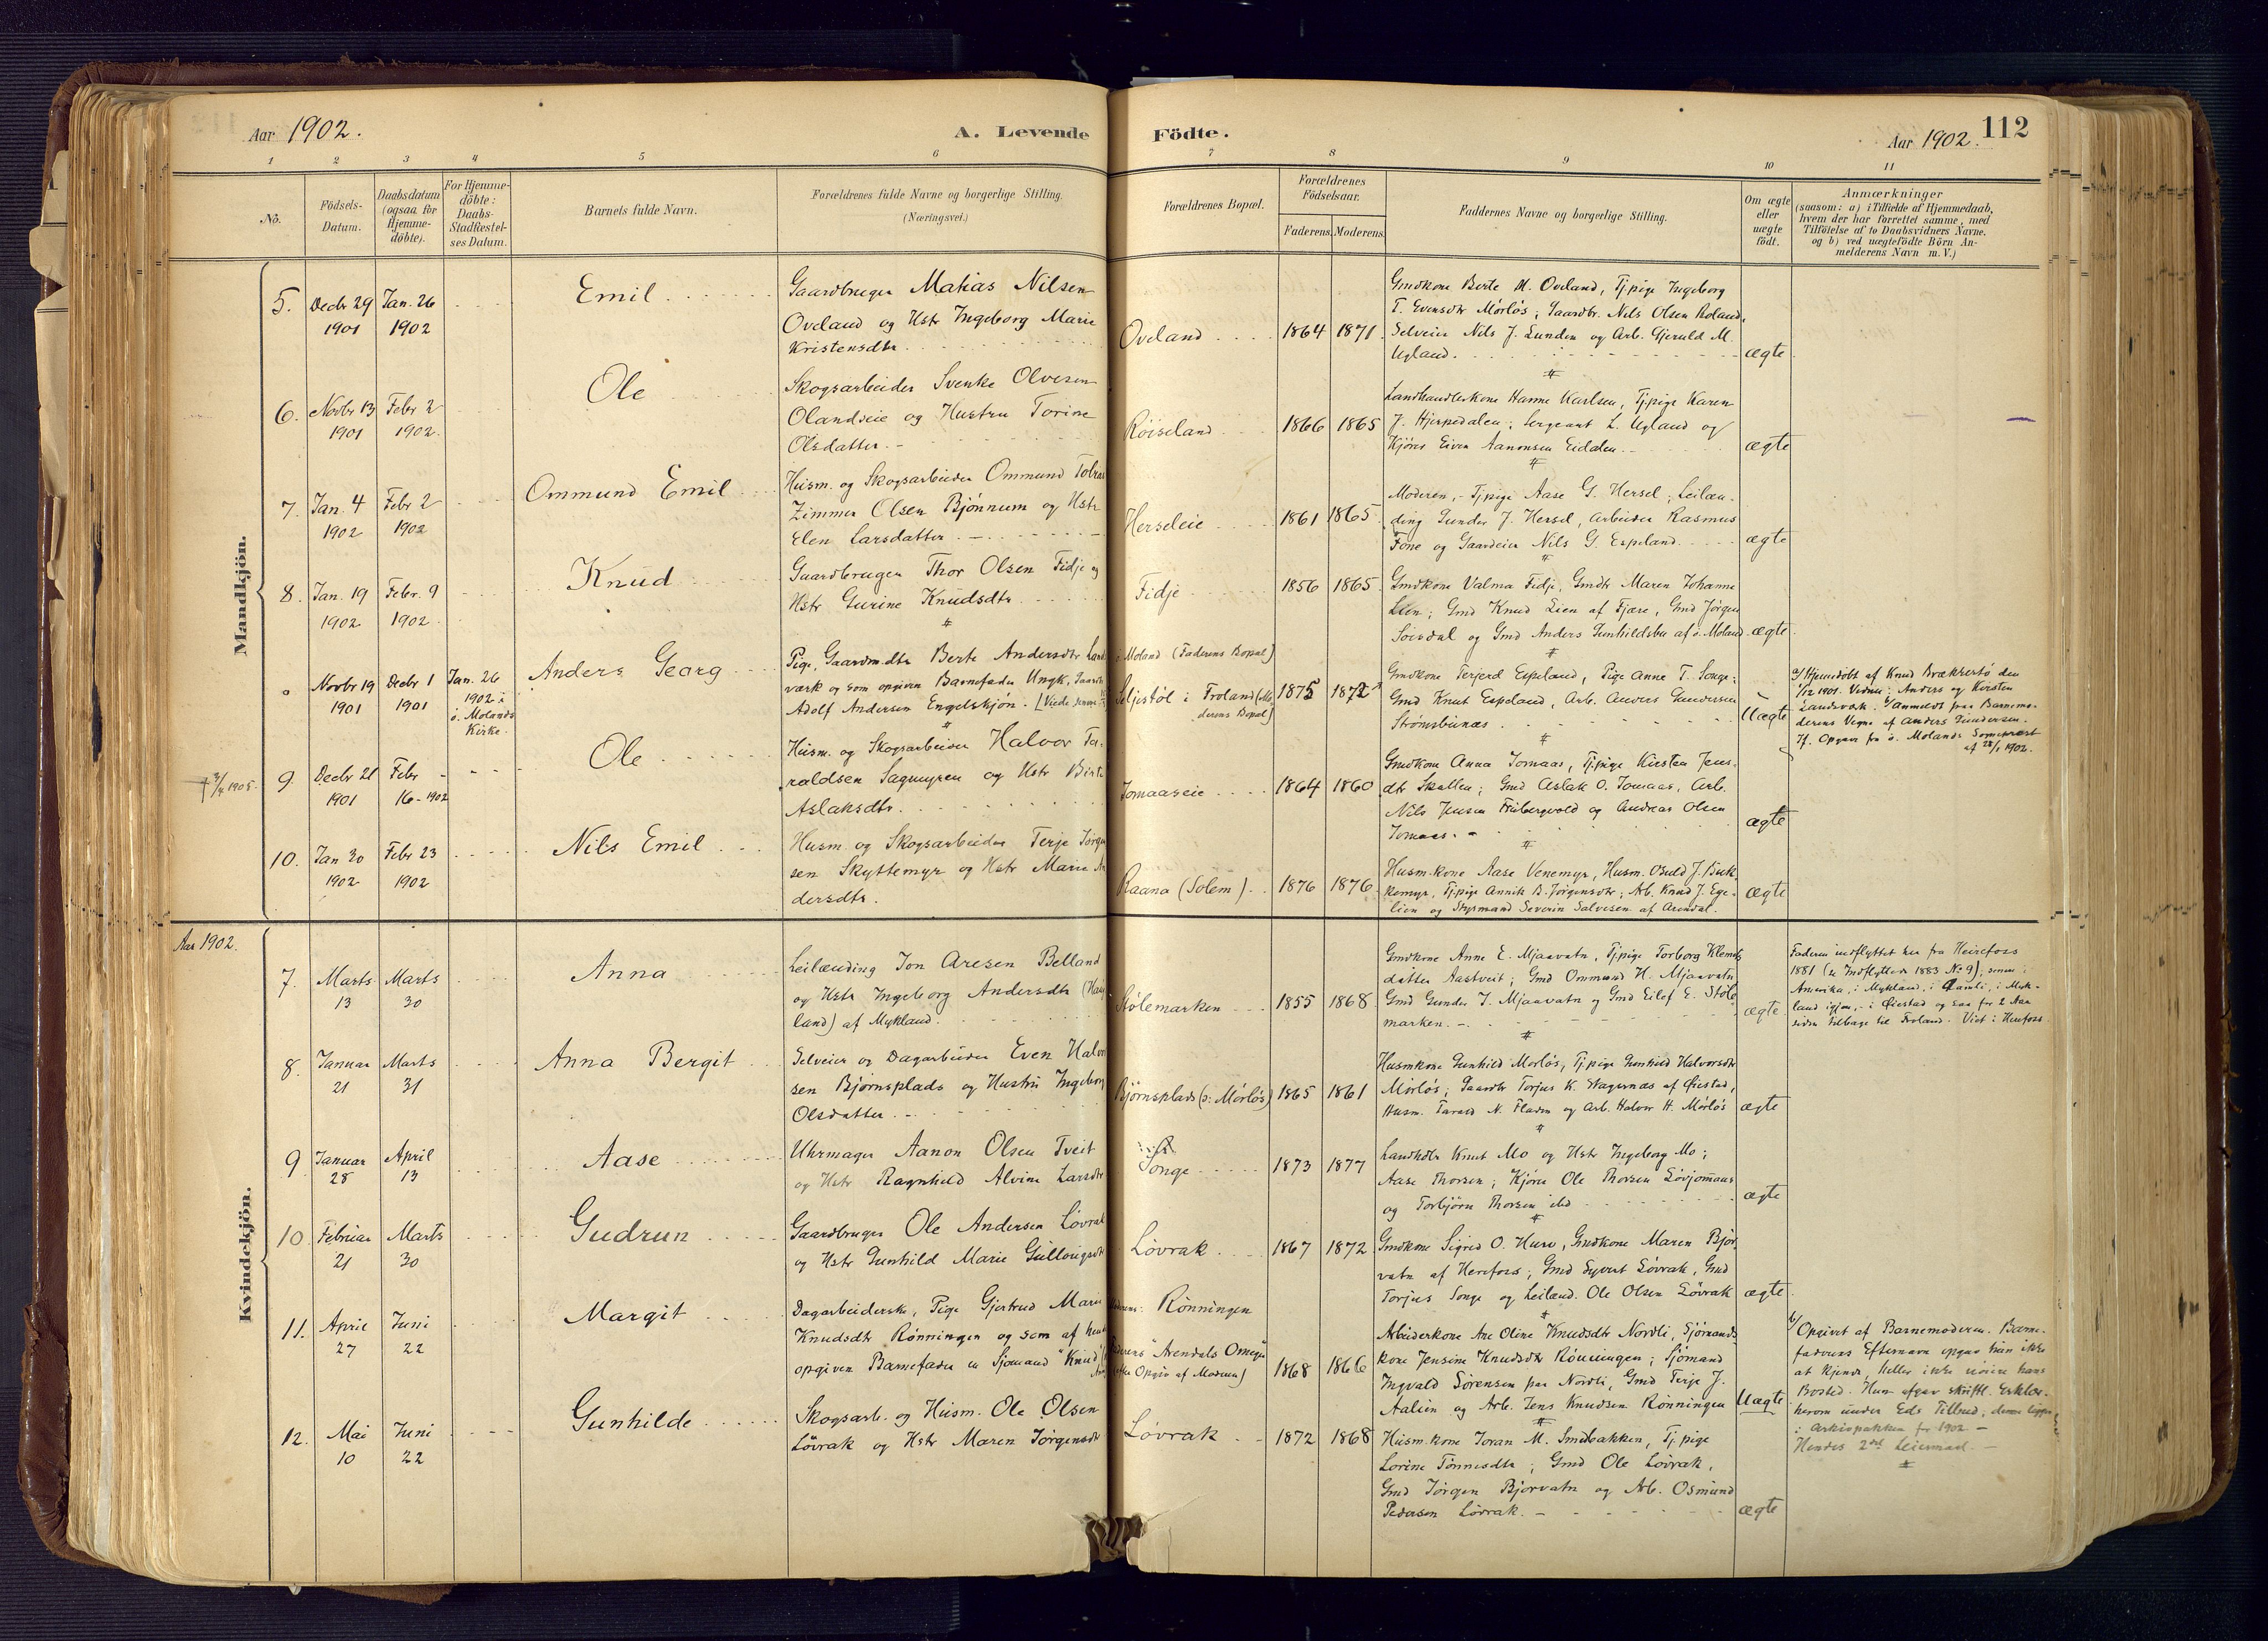 Aar 1902.
A. Levende
Födte.
Aar 1902.
112
1 2 3 4 5 6 7 8 9 10 11
No.
Födsels-
Datum.
Daabsdatum
(ogsaa for
Hjemme-
döbte).
For Hjemme-
döbte:
Daabs-
Stadfæstel-
ses Datum.
Barnets fulde Navn.
Forældrenes fulde Navne og borgerlige Stilling.
(Næringsvei.)
Forældrenes Bopæl.
Forældrenes
Födselsaar.
Faderens. Moderens.
Faddernes Navne og borgerlige Stilling.
Om ægte
eller
uægte
födt.
Anmærkninger
(saasom: a) i Tilfælde af Hjemmedaab,
hvem der har forrettet samme, med
Tilföielse af to Daabsvidners Navne.
og b) ved uægtefödte Börn An-
melderens Navn m. V.)
Mandkjön.
5. Decbr 29 1901
Jan. 26 1902
Emil
Gaardbruger Matias Nilsen
Oveland og Hstr Ingeborg Marie
Kristensdtr.
Oveland
1864 1871
Gmdkone Berte M. Oveland, Tjpige Ingeborg
T. Evensdtr Mörlös; Gaardbr. Nils Olsen Roland,
Selveier Nils J. Lunden og Arb. Gjeruld M.
Ugland.
ægte
6. Novbr 13 1901
Febr 2 1902.
Ole
Skogsarbeider Svenke Olvesen
Olandseie og Hustru Torine
Olsdatter.
Röiseland
1866 1865
Landhandlerkone Hanne Karlsen, Tjpige Karen
J. Hjerpedalen; Sergeant L. Ugland og
Kjörer Eiven Aanonsen Eidalen.
ægte
7. Jan. 4 1902
Febr 2 1902
Ommund Emil
Husm. og Skogsarbeider Ommund
Zimmer Olsen Bjönnum og Hstr
Elen Larsdatter.
Herseleie
1861 1865
Moderen, Tjpige Aase G. Hersel; Leilæn-
ding Gunder J. Hersel, Arbeider Rasmus
Fone og Gaardeier Nils G. Espeland.
ægte
8. Jan. 19 1902
Febr. 9 1902
Knud
Gaardbruger Thor Olsen Fidje og
Hstr Gurine Knudsdtr
Fidje
1856 1865
Gmdkone Valma Fidje, Gmdtr Maren Johanne
Lien; Gmd Knud Lien af Fjære, Gmd Jörgen
Soisdal og Gmd Anders Gunhildsbu af ö. Moland.
ægte
Novbr 19 1901
Decbr 1 1901
Jan. 26
1902 i
ö. Molands
Kirke.
Anders Georg
Pige, Gaardm.dtr Berte Andersdtr Land
værk og som opgiven Barnefader Ungk.
Adolf Andersen Engelskjön.
Moland (Faderens Bopæl)
Seljestöl i Froland (Mo
derens Bopæl)
1875 1872
Gmdkone Terjerd Espeland, Pige Anne T. Songe;
Gmd Knut Espeland, Arb. Anders Gundersen
Strömsbunæs
Uægte
a) Hjemdöbt af Knud Brækkestö den
1/12 1901. Vidner: Anders og Kirsten
Landsværk. b) Anmeldt paa Barnemo-
derens Vegne af Anders Gundersen.
Jf. Opgave fra ö. Molands Sogneprest
af 28/1 1902.
9. Decbr 21 1901
Febr 16 - 1902
Ole
Husm. og Skogsarbeider Halvor Ta-
raldsen Sagmyren og Hstr
Aslaksdtr.
Jomaaseie
1864 1860
Gmdkone Anna Jomaas, Tjpige Kirsten Jens-
dtr Skallen; Gmd Aslak O. Jomaas, Arb.
Nils Jensen Fribergvold og Andreas Olsen
Jomaas.
ægte
10. Jan 30 1902
Febr 23 1902
Nils Emil
Husm. og Skogsarbeider Terje Jörgen
sen Skyttemyr og Hstr Marie An
dersdtr.
Raana (Solem)
1876 1876
Husm.kone Aase Venemyr, Husm. Osuld J. Buk-
kemyr, Tjpige Annik B. Jörgensdtr; Arb. Knud J. Ege-
lien og Styrmand Severin Salvesen af Arendal.
ægte
Aar 1902.
Kvindekjön.
7. Marts 13
Marts 30
Anna
Leilænding Jon Aresen Belland
og Hstr Ingeborg Andersdtr
land) af Mykland.
Stölemarken
1855 1868
Gmdkone Anne E. Mjaavatn, Tjpige Torborg Klems
datter Aastveit; Gmd Ommund H. Mjaavatn
Gmd Gunder T. Mjaavatn og Gmd Eilef E. Stöle
marken.
ægte
Faderen indflyttet her fra Heirefoss
1881 (se Indflyttede 1883 No 9); senere i
Amerika, i Mykland, i Gamli, i Myk-
land igjen, i Öiestad og saa for 2 Aar
siden tilbage til Froland. Viet i Herefoss.
8. Januar 21
Marts 31
Anna Bergit
Selveier og Dagarbeider Even Halvor
sen Björnsplads og Hustru Ingeborg
Olsdatter.
Björnsplads (o: Mörlös)
1865 1861
Husmkone Gunhild Mörlös, Tjpige Gunhild Halvorsdtr
Mörlös; Gaardbr Torjus K. Stagernæs af Öiestad,
Husm. Tarald N. Fladen og Arb. Halvor H. Mörlös
ægte
9. Januar 28
April 13
Aase
Uhrmager Aanon Olsen Tveit
og Hstr Ragnhild Alvine Larsdtr
Songe
1873 1877
Landhdlr Knut Mo og Hstr Ingeborg Mo;
Aase Thorsen; Kjörer Ole Thorsen Lövjomaas
og Torbjörn Thorsen ibd
ægte
10. Februar 21
Marts 30
Gudrun
Gaardbruger Ole Andersen Lövrak
og Hstr Gunhild Marie Gullougsdtr
Lövrak
1867 1872
Gmdkone Sigrid O. Hurv, Gmdkone Maren Bjor
vatn af Herefoss; Gmd Syvert Lövrak, Gmd
Torjus Songe og Leilænd. Ole Olsen Lövrak
ægte.
11. April 27
Juni 22
Margit
Dagarbeiderske, Pige Gjertrud Marie
Knudsdtr Rönningen og som af hende
opgiven Barnefader en Sjömand "Knud"
Rönningen
Arendals Omegn
(efter Opgiv af Moderen)
1868 1866
Arbeiderkone Ane Oline Knudsdtr Nordli, Sjömands
kone Jensine Knudsdtr Rönningen; Sjömand
Ingvald Sörensen paa Nordli, Gmd Terje J.
Aalien og Arb. Jens Knudsen Rönningen
Uægte
b) Opgivet af Barnemoderen. Barne-
faderens Efternavn opgav hun ikke
at kjende, heller ikke hans
Bosted. Hun afgav skriftl. Erklær.
herom under Eds Tilbud; denne ligger
i Arkivpakken for 1902 -
Hendes 2det Leiermaal.
12. Mai 10
Juni 22
Gunhilde
Skogsarb. og Husm. Ole Olsen
Lövrak og Hstr Maren Jörgensdtr
Lövrak
1872 1868
Husm.kone Joran M. Smedbakken, Tjpige
Lorine Tönnesdtr; Gmd Ole Lövrak,
Gmd Jörgen Bjorvatn og Arb. Osmund
Pedersen Lövrak.
ægte